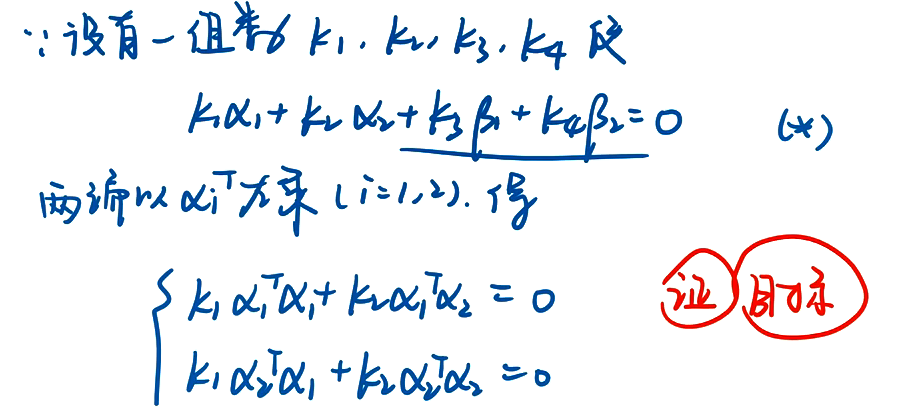 ∵设有一组数 k₁,k₂,k₃,k₄ 使
k₁α₁+k₂α₂+k₃β₁+k₄β₂=0 (*)
两端以 αᵢᵀ左乘(i=1,2).得
k₁α₁ᵀα₁+k₂α₁ᵀα₂=0
k₁α₂ᵀα₁+k₂α₂ᵀα₂=0
证 目标